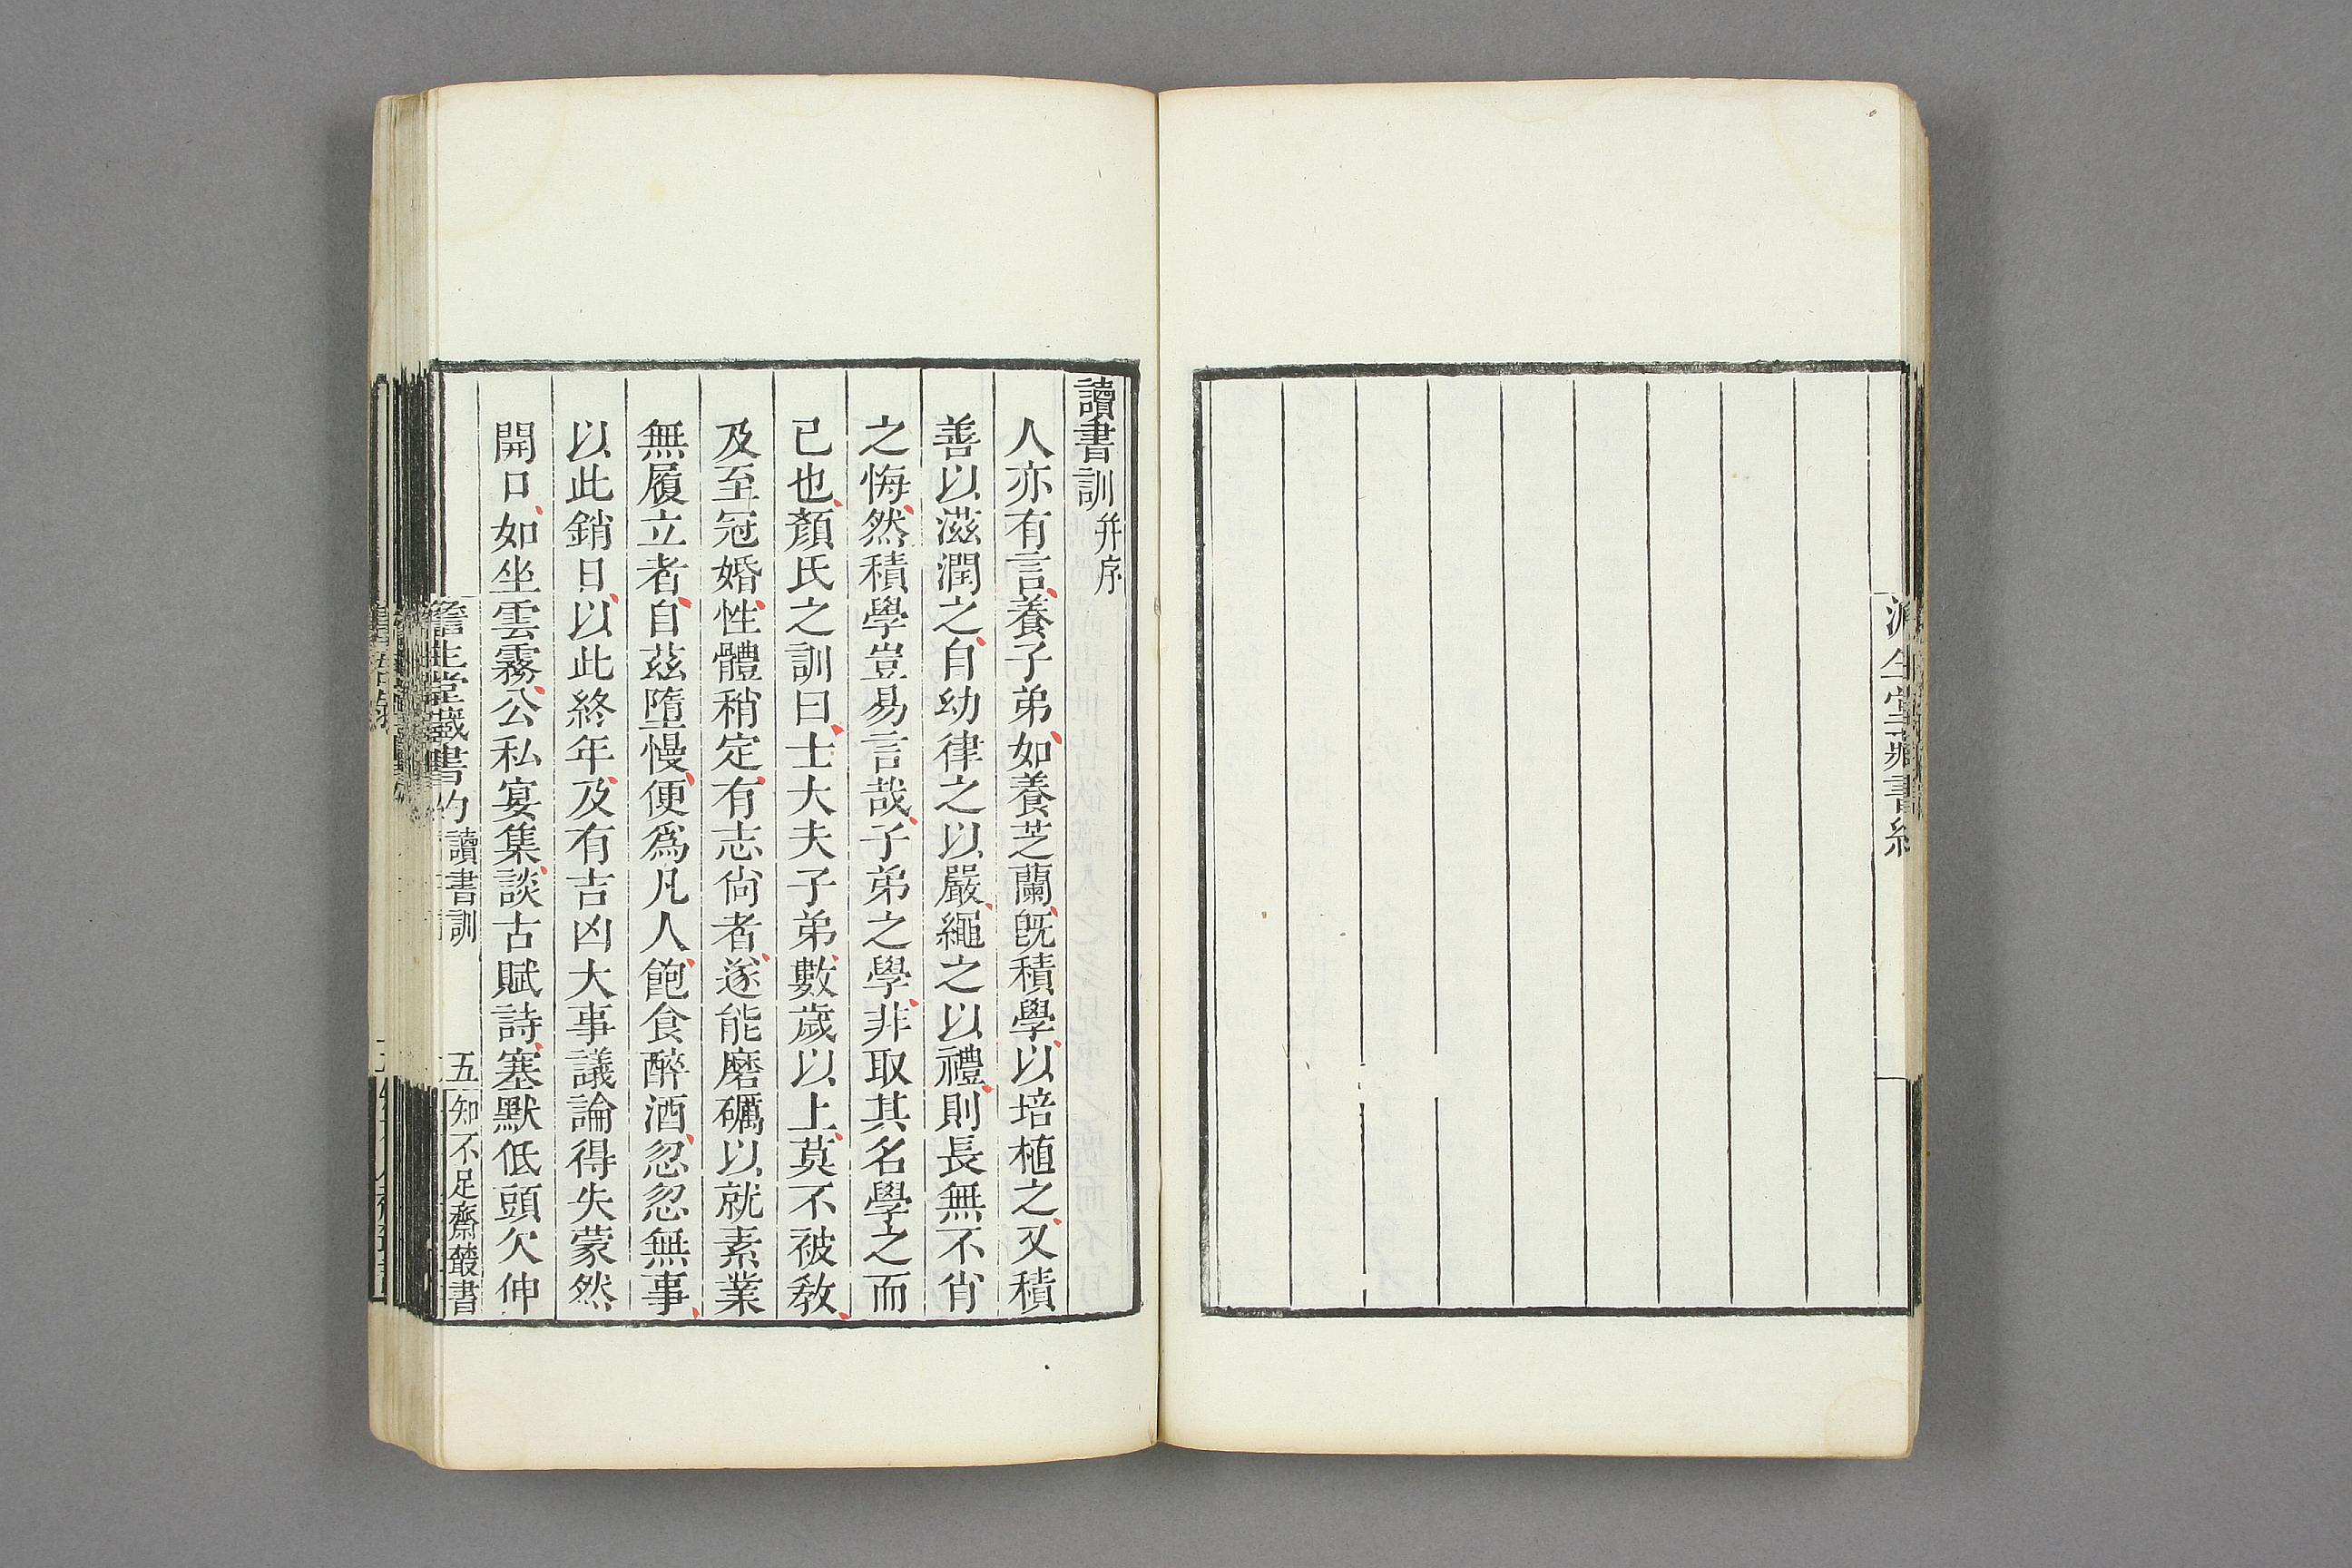 生堂藏書約
讀書訓并序
人亦有言養子弟如養芝蘭旣積學以培植之又積
善以滋潤之自幼律之以嚴繩之以禮則長無不肖
之悔然積學豈易言哉子弟之學非取其名學之而
已也顏氏之訓曰士大夫子弟數歲以上莫不被敎
及至冠婚性體稍定有志尙者遂能磨礪以就素業
無履立者自茲墮慢便爲凡人飽食醉酒忽忽無事
以此銷日以此終年及有吉凶大事議論得失蒙然
開口如坐雲霧公私宴集談古賦詩塞默低頭欠伸
澹生堂藏書約 讀書訓 五 知不足齋叢書